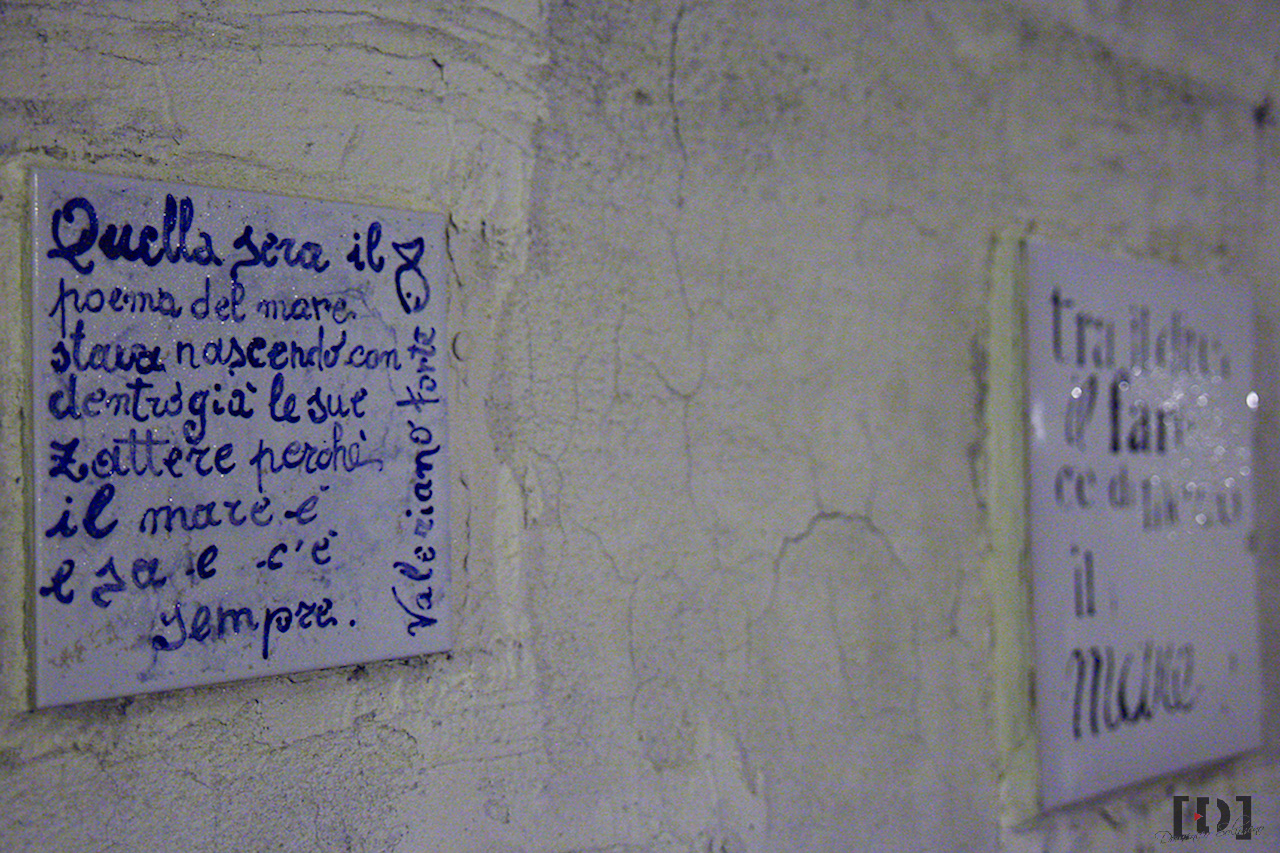 Quella sera il
poema del mare
stava nascendo con
dentro già le sue
zattere perchè
il mare è
e sa e c'è
sempre.
Valeriano Forte
tra il dire
il fare
ce di mezzo
il
mare
[D]